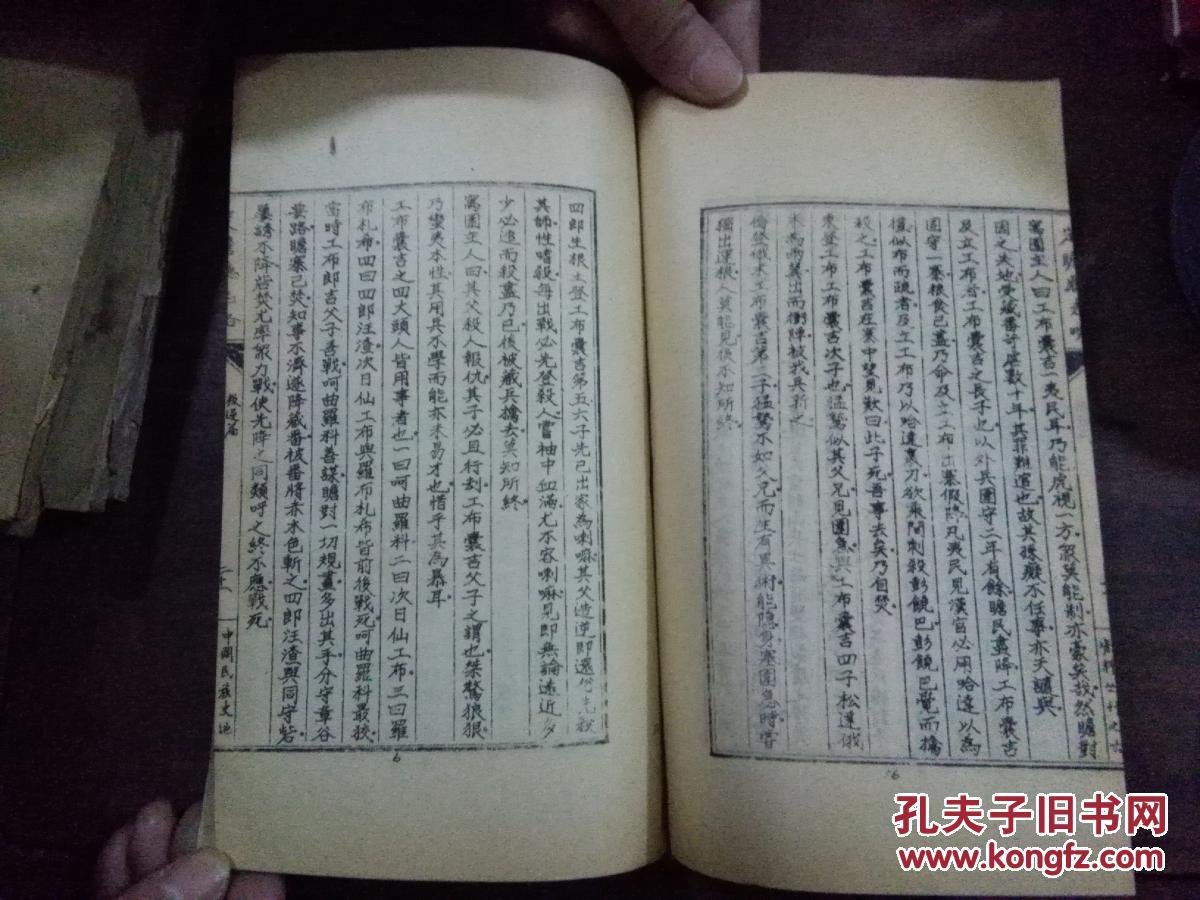 寓圃主人曰工布囊吉一夷民耳乃能虎視一方眾莫能制亦豪矣哉然瞻對
因之失地堂藏番計
數十年其罪難逭也故其殘廢不任事亦天譴與
及立工布者工布囊吉之長子也以外兵圍守二年有餘瞻民盡降工布囊吉
固守一寨粮食已盡乃命及立工布出寨假降凡夷民見漢官必用哈達以為
儀似布而疏者及立工布乃以哈達裹刀欲乘間刺殺彭饒巴彭饒巴覺而擒
殺之工布囊吉在寨中望見歎曰此子死吾事去矣乃自焚
東登工布工布囊吉次子也猛鷙似其父兄見圍急與工布囊吉四子松達俄
木為兩翼出而衝陣被我兵斬之
工布囊吉第三子猛鷙不如父兄而生有異術能隱身寨圍急時嘗
獨出運粮人莫能見後不知所終
四郎生根主登工布囊吉第五六子先已出家為喇嘛其父造逆即還
其師性嗜殺每出戰必先登殺人嘗袖中血滿尤不容喇嘛見即無論遠近多
少必追而殺盡乃已後被藏兵擒去莫知所終
寓圃主人曰其父殺人報仇其子必且行刦工布囊吉父子之謂也桀驁狠狠
乃蠻夷本性其用兵不學而能亦未易才也惜乎其為暴耳
工布囊吉之四大頭人皆用事者也一曰呵曲羅科二曰次日仙工布三曰羅
布札布四曰四郎汪渣次日仙工布與羅布札布皆前後戰死呵曲羅科最狡
當時工布郎吉父子善戰呵曲羅科善謀瞻對一切規畫多出其手分守章谷
婁路瞻寨已焚知事不濟遂降藏番被番將赤本色斬之四郎汪渣與同守砦
屢誘不降砦焚尤率眾力戰使先降之同類呼之終不應戰死
叛逆篇
中國民族史地
6
6
孔夫子旧书网
www.kongfz.com